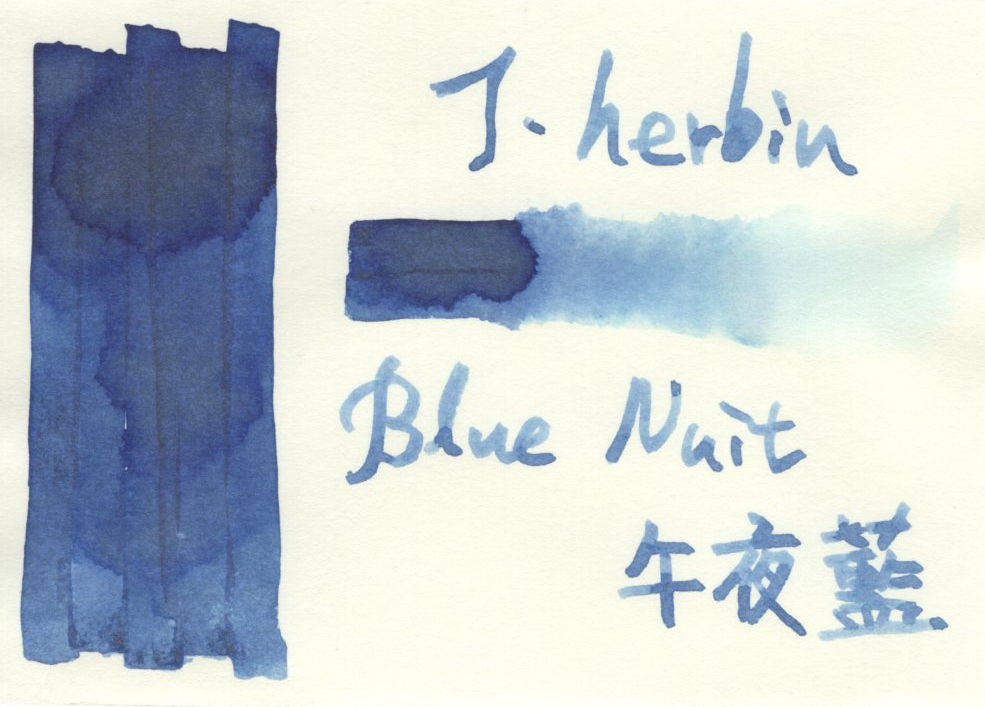 J. herbin
Blue Nuit
午夜藍.